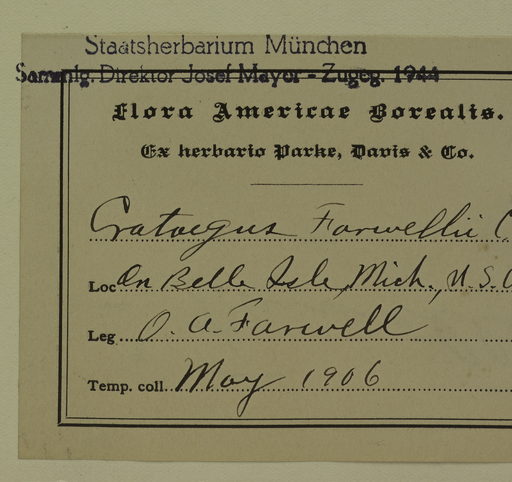 Staatsherbarium München
Sammlg. Direktor Josef Mayer - Zugeg. 1944
Flora Americae Borealis.
Ex herbario Parke, Davis & Co.
Crataegus Farwellii
Loc On Belle Isle, Mich., U.S.
Leg O. A. Farwell
Temp. coll. May 1906